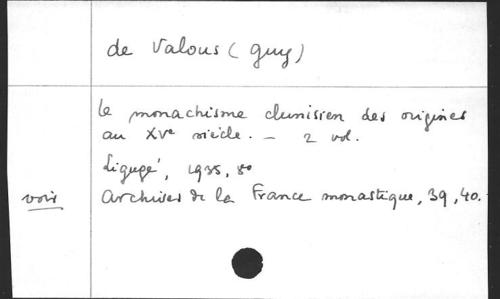 de Valous (Guy)
Le monachisme clunisien des origines
au XVe siècle. - 2 vol.
Ligugé, 1935, 8°
voir Archives de la France monastique, 39, 40.